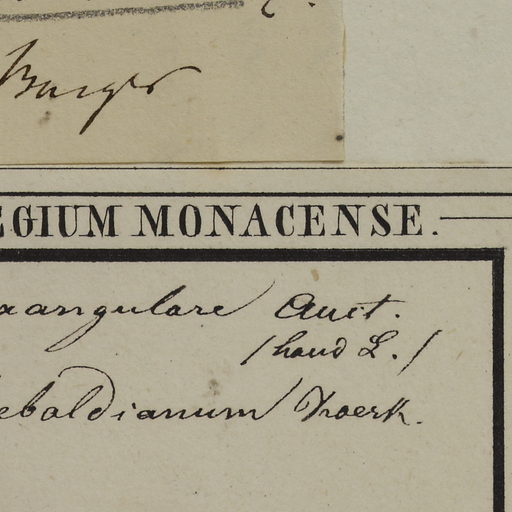 Burger
EGIUM MONACENSE.
xangulare Auct.
/haud L./
eboldianum Thoerk.